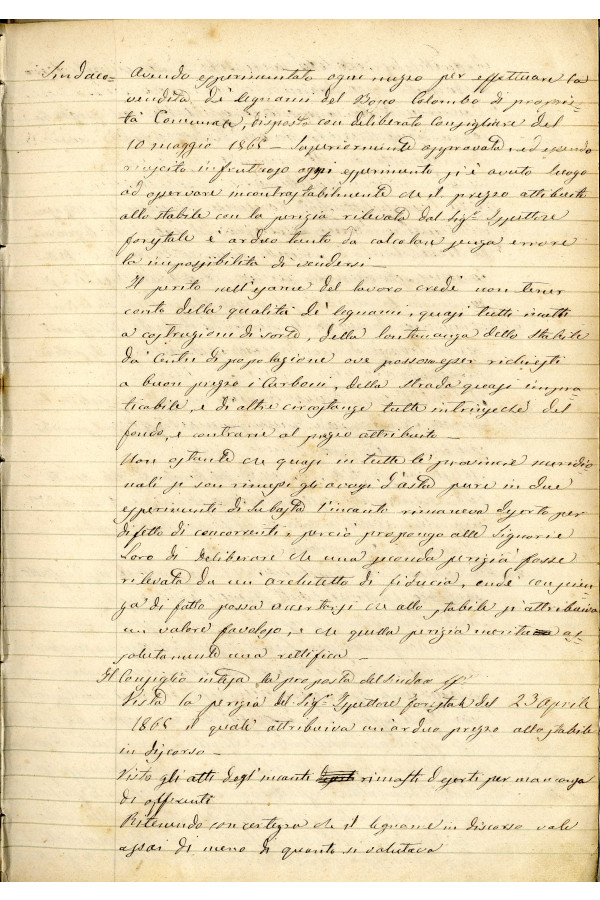 Sindaco = Avendo esperimentato ogni mezzo per effettuare la
vendita de' legnami del Bosco Colombo di proprie-
tà Comunale, disposta con deliberato Consigliare del
10 maggio 1865 – Superiormente approvata, ed essendo
riuscito infruttuoso ogni esperimento si è avuto luogo
ad osservare incontrastabilmente che il prezzo attribuito
allo stabile con la perizia rilevata dal Sig.r Ispettore
forestale è arduo tanto da calcolare senza errore
la impossibilità di vendersi –
Il perito nell'esame del lavoro credé non tener
conto della qualità de' legnami, quasi tutti inetti
a costruzioni di sorte, della lontananza dello stabile
da' centri di popolazione ove possono esser richiesti
a buon prezzo i Carboni, della strada quasi impra-
ticabile, e di altre circostanze tutte intrinseche del
fondo, e contrarie al prezzo attribuito –
Non ostante che quasi in tutte le provincie meridio-
nali si son rincesi gli avagi d'asta pure in due
esperimenti di Subasta l'incanto rimaneva deserto per
difetto di concorrenti, perciò propongo alle Signorie
Loro di deliberare che una seconda perizia fosse
rilevata da un architetto di fiducia, onde
di fatto possa accertarsi che allo stabile si attribuiva
un valore favoloso, e che quella perizia merita as-
solutamente una rettifica –
Il Consiglio intesa la proposta del Sindaco ff.
Vista la perizia del Sig.r Ispettore Forestale del 23 Aprile
1865 il quale attribuiva un'arduo prezzo allo stabile
in discorso –
Visto gli atti degl'incanti rimasti deserti per mancanza
di offerenti
Ritenendo con certezza che il legname in discorso vale
assai di meno di quanto si valutava